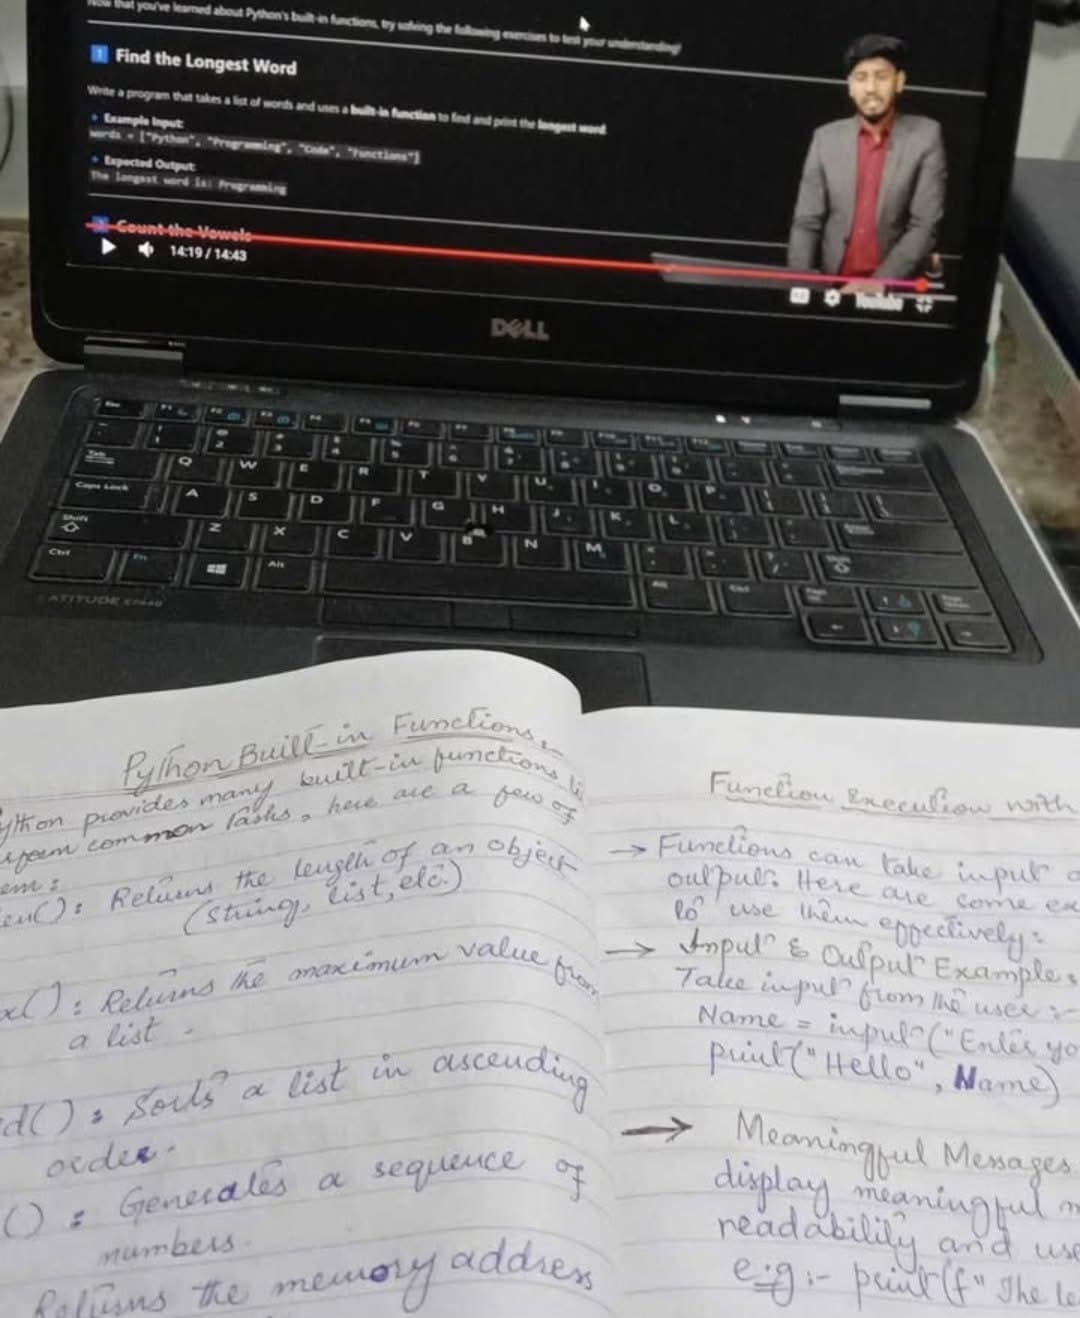 Now that you've learned about Python's built-in functions, try solving the following exercises to test your understanding!
1 Find the Longest Word
Write a program that takes a list of words and uses a built-in function to find and print the longest word
Example Input:
words = ["Python", "Programming", "Code", "Functions"]
Expected Output:
The longest word is: Programming
2 Count the Vowels
14:19 / 14:43
YouTube
DELL
Esc
Tab
Q W E R T Y U I O P
Caps Lock
A S D F G H J K L
Shift
Z X C V B N M
Ctrl Fn Alt Alt Ctrl
LATITUDE
Python Built-in Functions:-
ython provides many built-in functions
common tasks, here are a few of
em:
len(): Returns the length of an object
(string, list, etc.)
x(): Returns the maximum value from
a list.
d(): Sorts a list in ascending
order.
(): Generates a sequence of
numbers.
Returns the memory address
Function Execution with
→ Functions can take input
output. Here are some ex
to use them effectively:
→ Input & Output Example:
Take input from the user:-
Name = input("Enter yo
print("Hello", Name)
→ Meaningful Messages
display meaningful m
readability and use
e.g:- print(f" The le